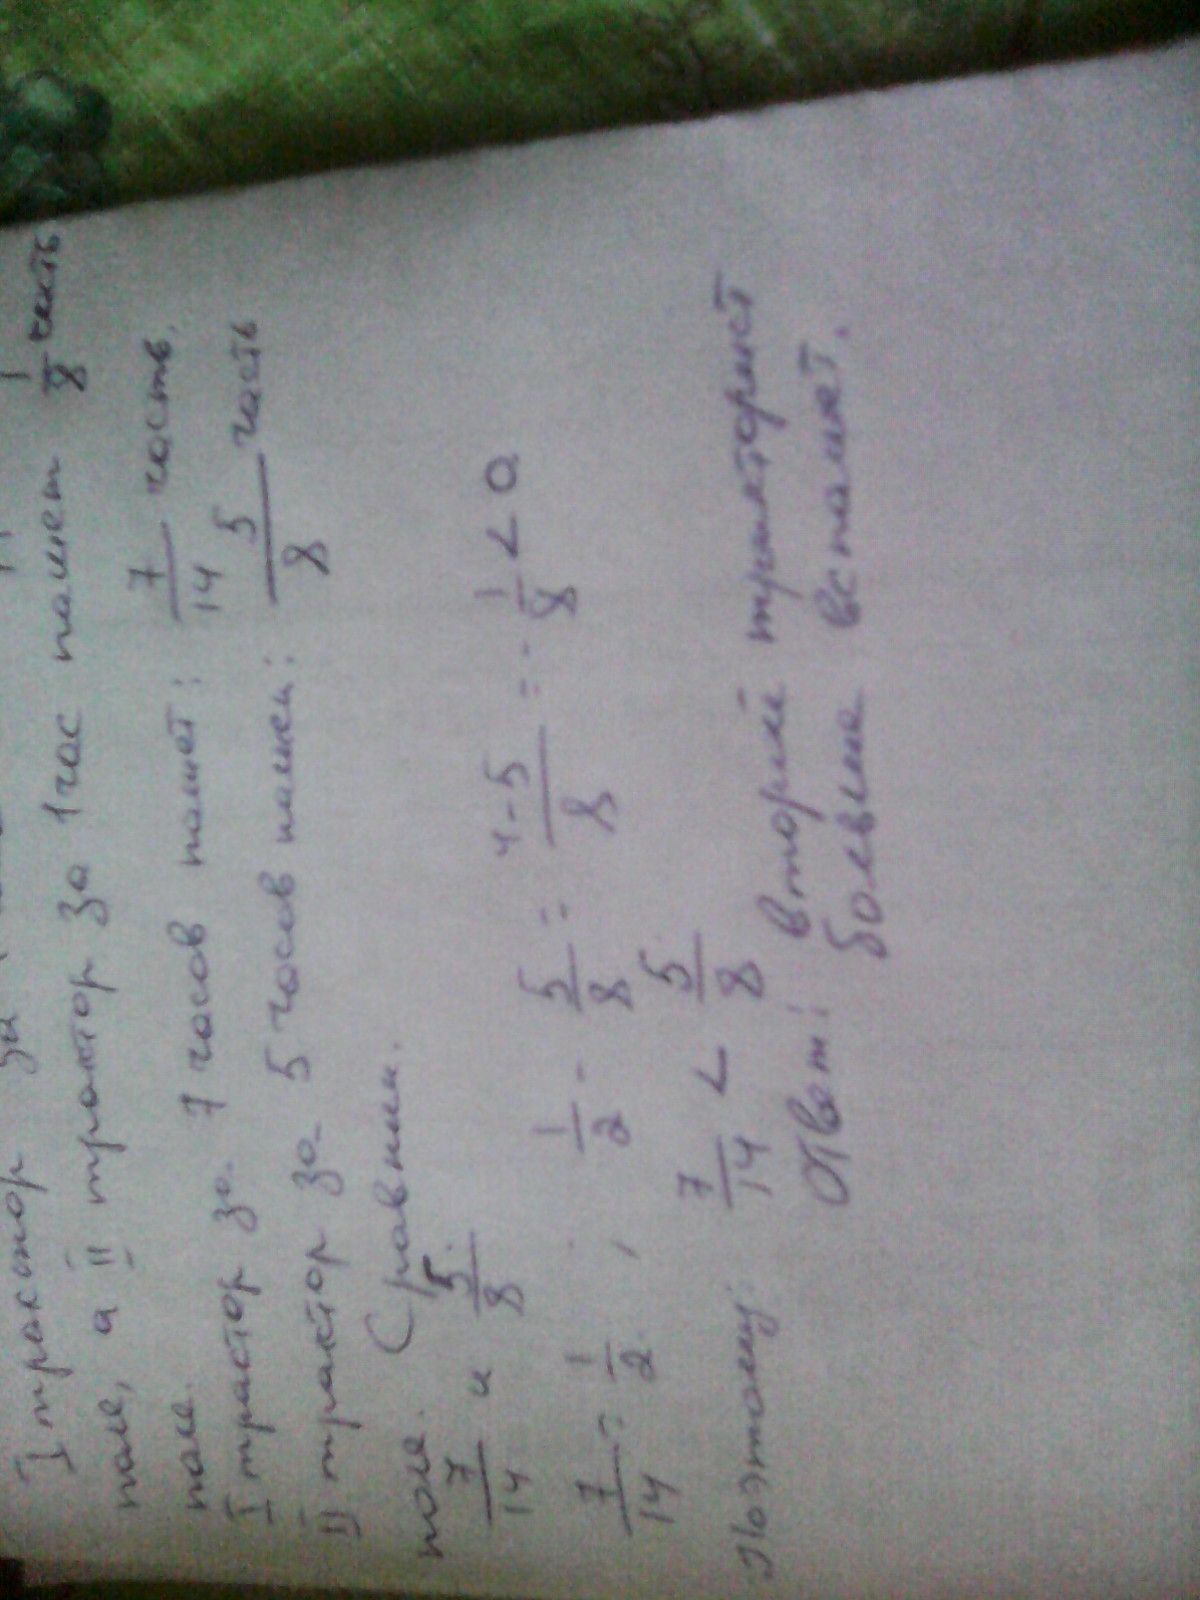 I трактор за
поле, а II трактор за 1 час вспашет 1/8 часть
поле.
I трактор за 7 часов пашет: 7/14 часть,
II трактор за 5 часов пашет: 5/8 часть
поле. Сравним.
7/14 и 5/8
7/14 = 1/2, 1/2 - 5/8 = 4-5/8 = - 1/8 < 0
Поэтому: 7/14 < 5/8
Ответ: второй тракторист
больше вспашет.